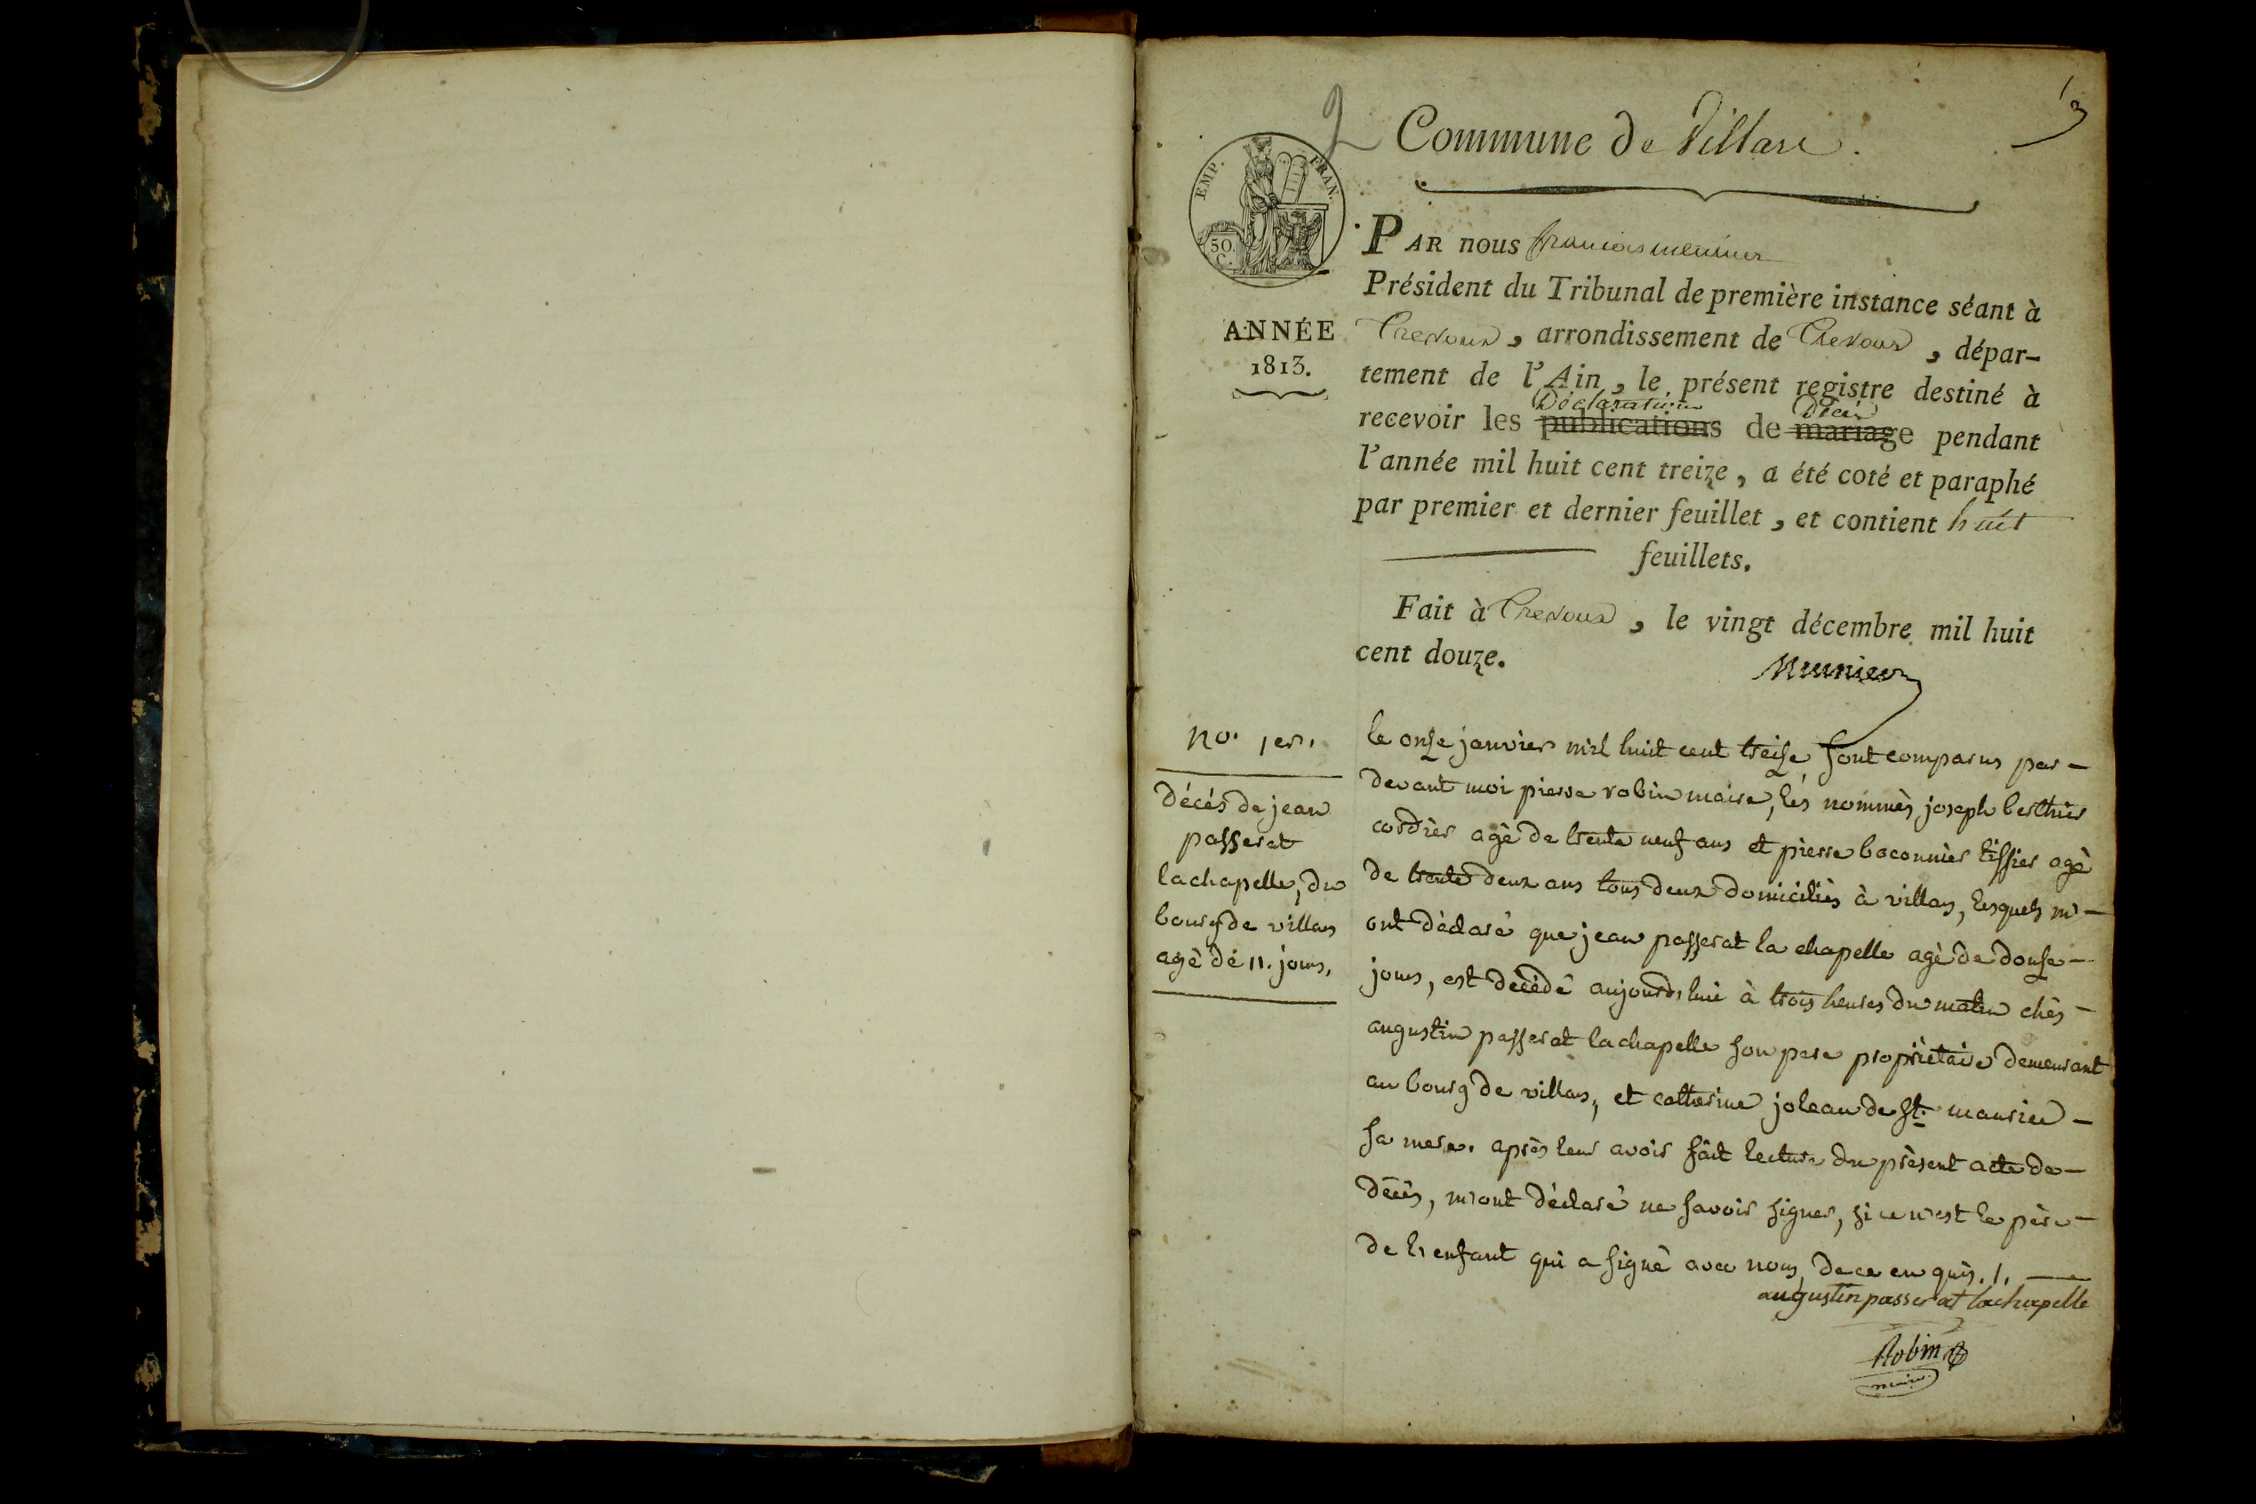 2 Commune de Villars
EMP. FRAN.
50.
C.
ANNÉE
1813.
PAR nous francois meunier
Président du Tribunal de première instance séant à
Trevoux, arrondissement de Trevoux, dépar-
tement de l'Ain, le présent registre destiné à
Déclarations Décès
recevoir les publications de mariage pendant
l'année mil huit cent treize, a été coté et paraphé
par premier et dernier feuillet, et contient huit
feuillets.
Fait à Trevoux, le vingt décembre mil huit
cent douze.
Meunier
no. 1er.
Décés de jean
passerat
lachapelle, du
bourg de villars
agè dé 11. jours,
le onse janvier mil huit cent treise sont comparus par-
devant moi pierre robin maire, lés nommès joseph berthier
cordier agè de trente neuf ans et pierre baconnier tissier agè
de trente deux ans tous deux domiciliès à villars, lesquels m'-
ont déclaré que jean passerat la chapelle agè de douse-
jours, est décédé aujourd'hui à trois heures du matin chès-
augustin passerat lachapelle son pere propriètaire demeurant
au bourg de villars, et catherine joleau de st. maurice-
sa mere. après leur avoir fait lecture du prèsent acte de-
décès, m'ont déclaré ne savoir signer, si ce n'est le père-
de l'enfant qui a signè avec nous, de ce enquis. /.
augustin passerat lachapelle
Robin
maire.